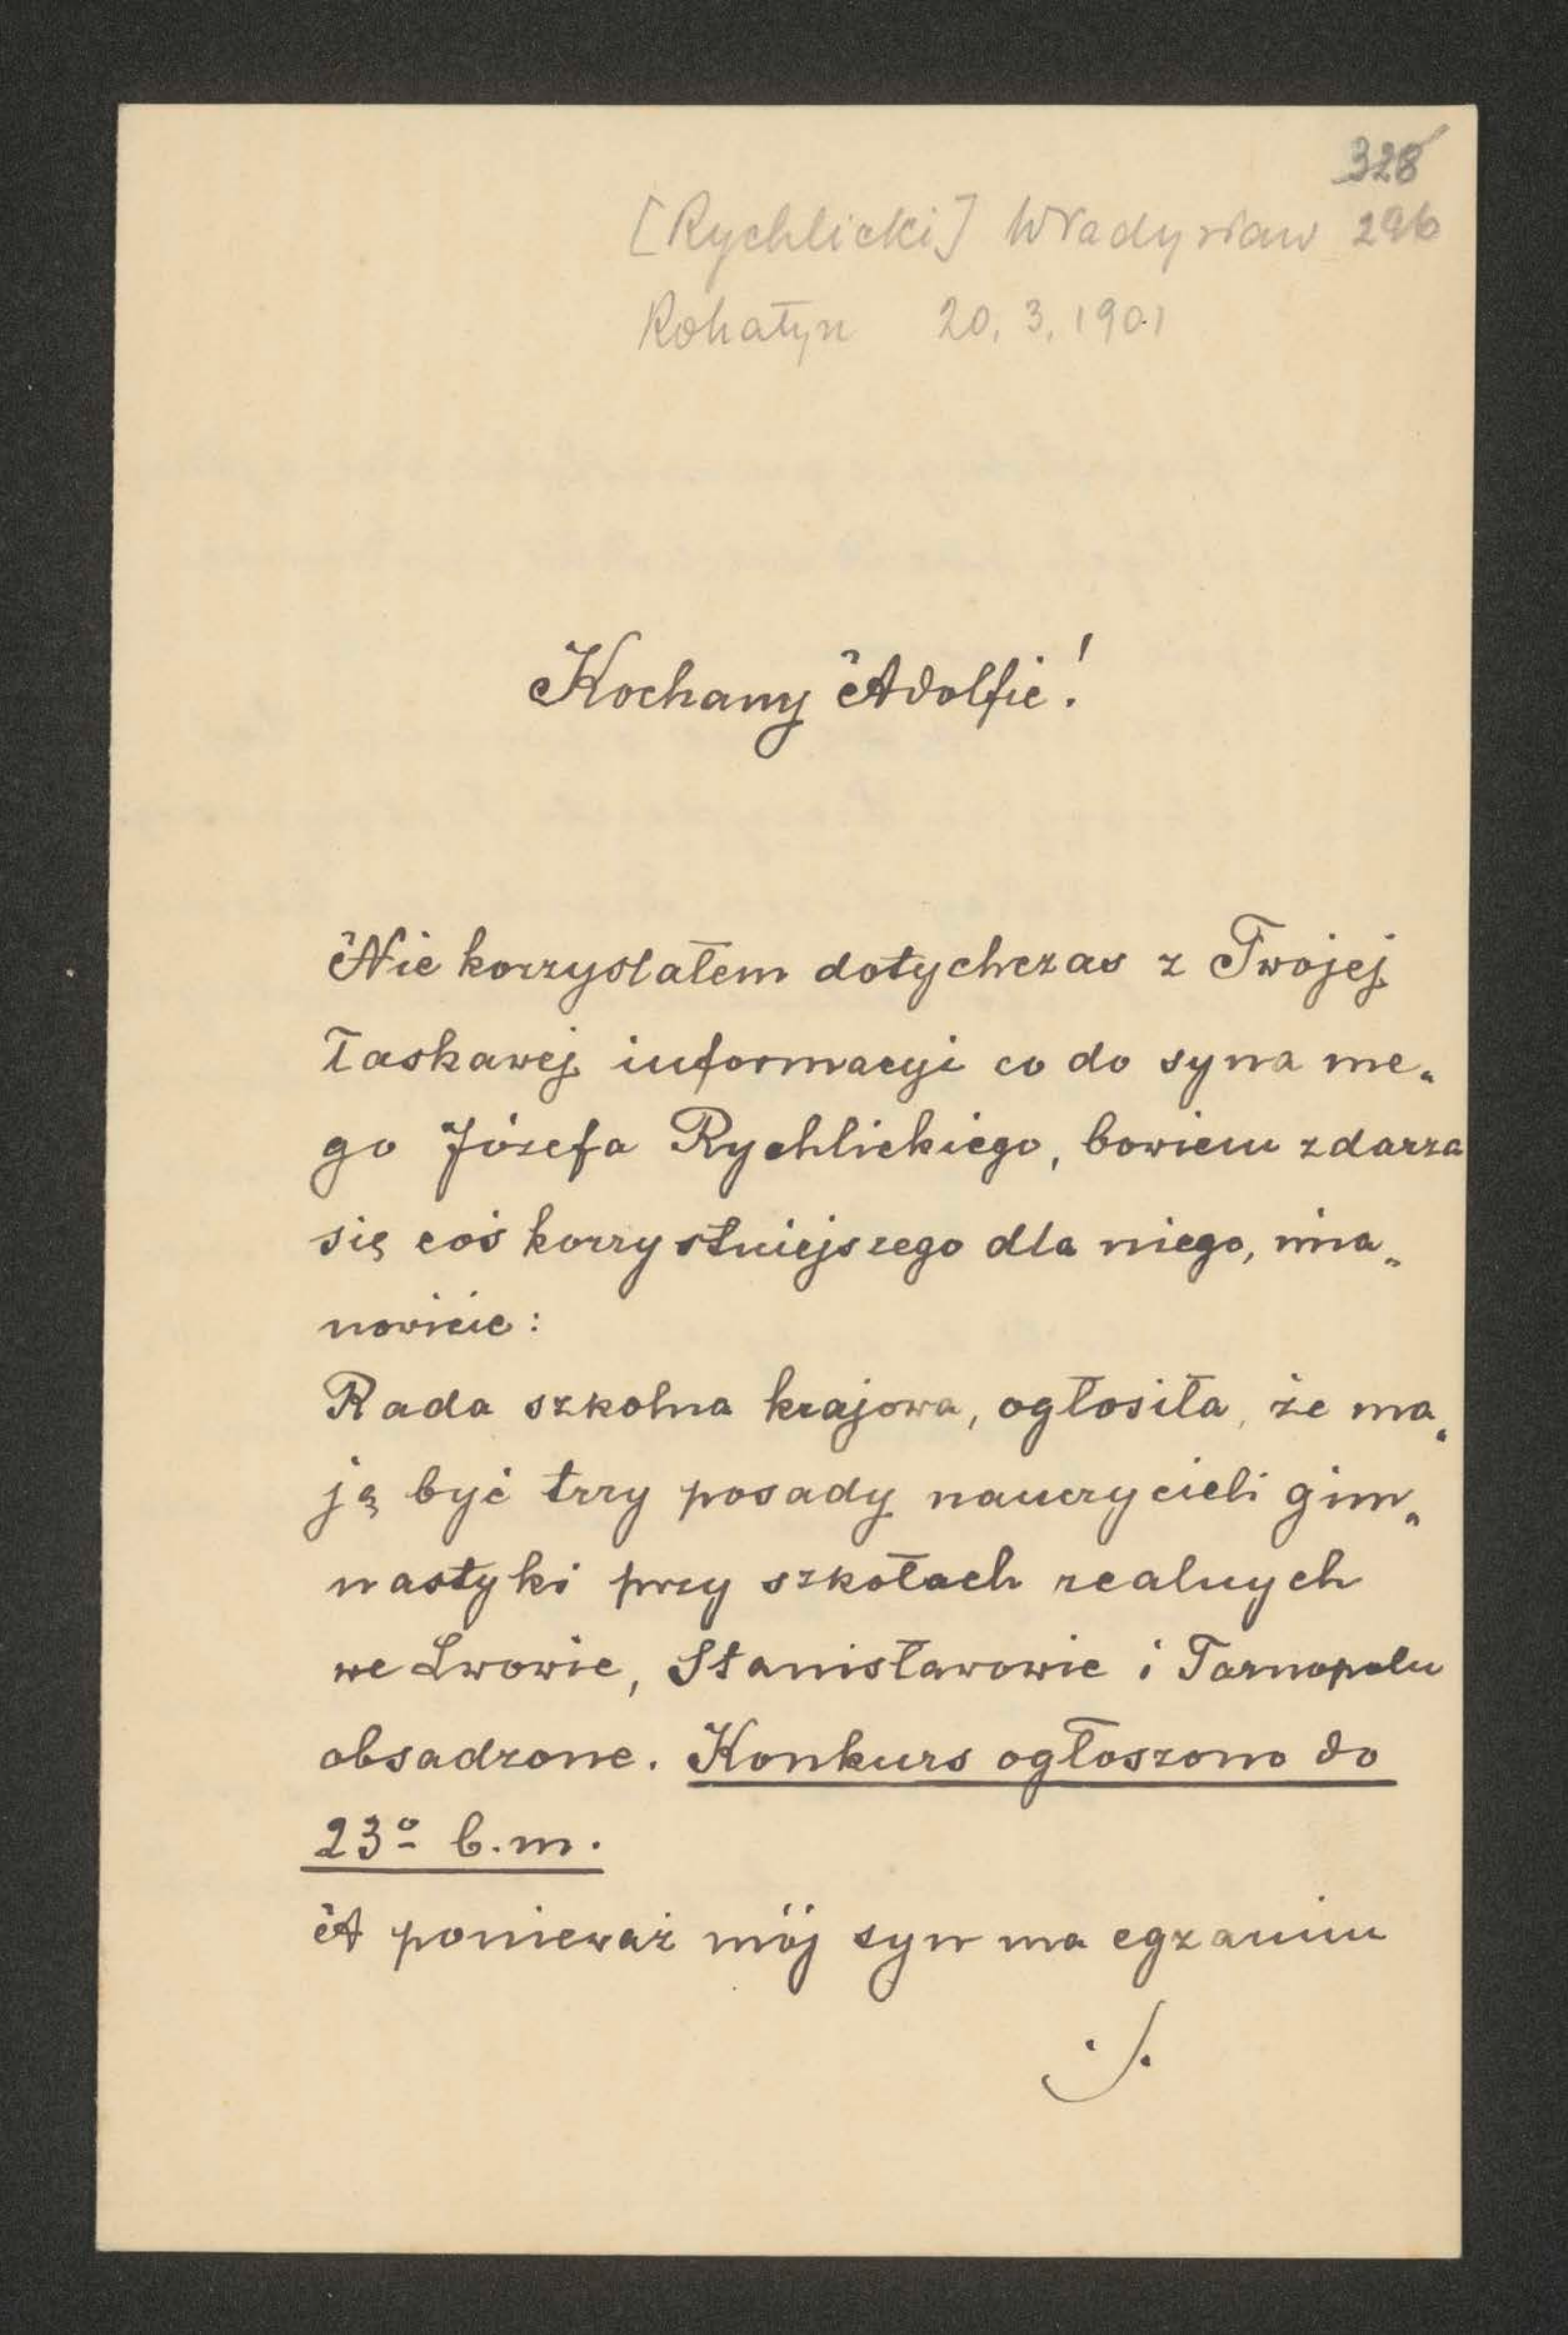 328
[Rychlicki] Władysław 296
Rohatyn 20.3.1901
Kochany Adolfie!
Nie korzystałem dotychczas z Twojej
łaskawej informacyi co do syna me„
go Józefa Rychlickiego, bowiem zdarza
się coś korzystniejszego dla niego, mia„
nowicie:
Rada szkolna krajowa, ogłosiła, że ma„
ją być trzy posady nauczycieli gim„
nastyki przy szkołach realnych
we Lwowie, Stanisławowie i Tarnopolu
obsadzone. Konkurs ogłoszono do
23º b.m.
A ponieważ mój syn ma egzamin
./.